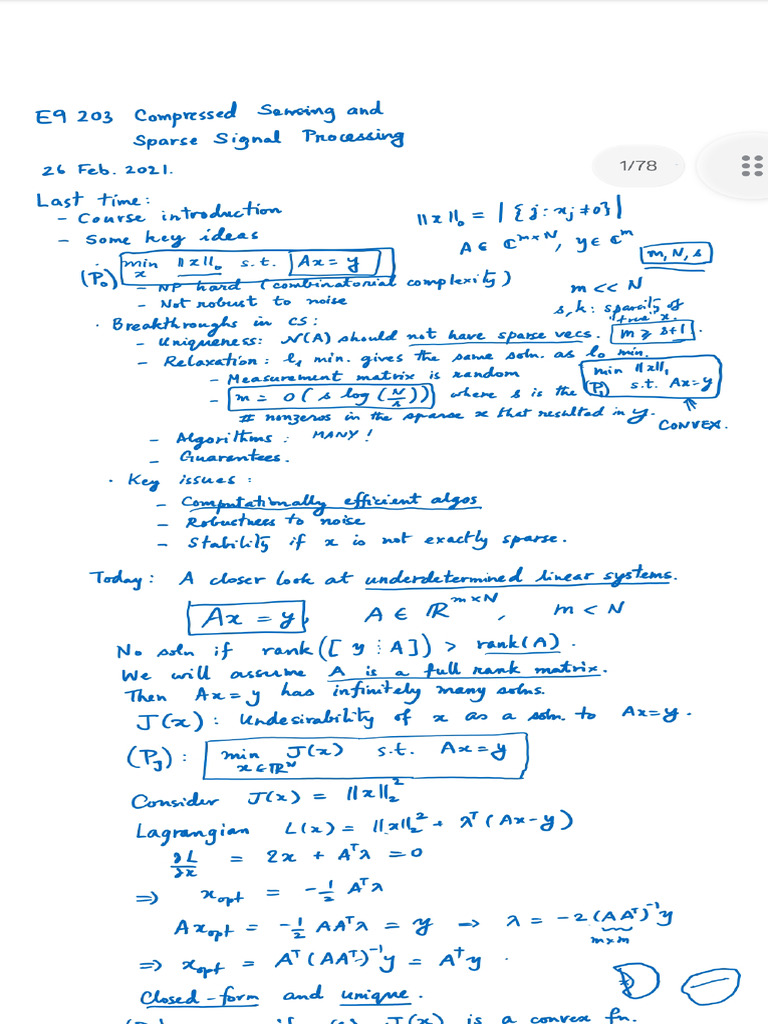 1/78
E9 203 Compressed Sensing and
Sparse Signal Processing
26 Feb. 2021.
Last time:
- Course introduction
- Some key ideas
‖x‖₀ = |{j : xj ≠ 0}|
A ∈ ℂ^{m×N}, y ∈ ℂ^m
m, N, s
(P₀) min_x ‖x‖₀ s.t. Ax = y
- NP hard (combinatorial complexity)
- Not robust to noise
m << N
s, k : sparsity of
true x.
· Breakthroughs in CS:
- Uniqueness: N(A) should not have sparse vecs. m ⩾ s+1.
- Relaxation: l₁ min. gives the same soln. as l₀ min.
- Measurement matrix is random
- m = O(s log(N/s)) where s is the
# nonzeros in the sparse x that resulted in y.
(P₁) min ‖x‖₁
s.t. Ax = y
CONVEX.
- Algorithms: MANY!
- Guarantees.
· Key issues:
- Computationally efficient algos
- Robustness to noise
- Stability if x is not exactly sparse.
Today: A closer look at underdetermined linear systems.
Ax = y, A ∈ ℝ^{m×N}, m < N
No soln if rank([y ⋮ A]) > rank(A).
We will assume A is a full rank matrix.
Then Ax = y has infinitely many solns.
J(x): Undesirability of x as a soln. to Ax = y.
(P_J): min_{x∈ℝ^N} J(x) s.t. Ax = y
Consider J(x) = ‖x‖₂²
Lagrangian L(x) = ‖x‖₂² + λᵀ(Ax - y)
∂L/∂x = 2x + Aᵀλ = 0
⇒ x_opt = -½ Aᵀλ
Ax_opt = -½ AAᵀλ = y → λ = -2(AAᵀ)⁻¹y
m×m
⇒ x_opt = Aᵀ(AAᵀ)⁻¹y = A†y.
Closed-form and unique.
J(x) is a convex fn.